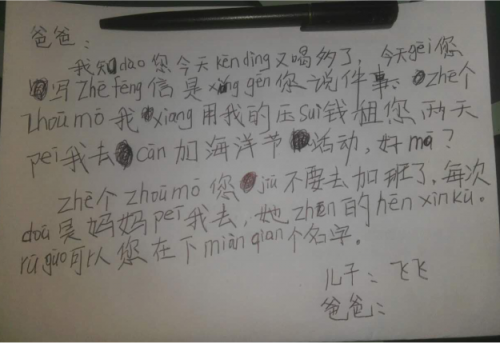 爸爸：
我知dao您今天kěndìng又喝多了，今天gěi您
写zhē fēng信是xiǎng gēn您说件事：zhē个
zhōu mō我xiang用我的压suì钱租您两天
péi我去cān加海洋节活动，好mā？
zhē个zhōu mō您jiù不要去加班了，每次
dōu是妈妈péi我去，她zhēn的hěn xīn kǔ。
rú guǒ可以您在下miàn qian个名字。
儿子：飞飞
爸爸：